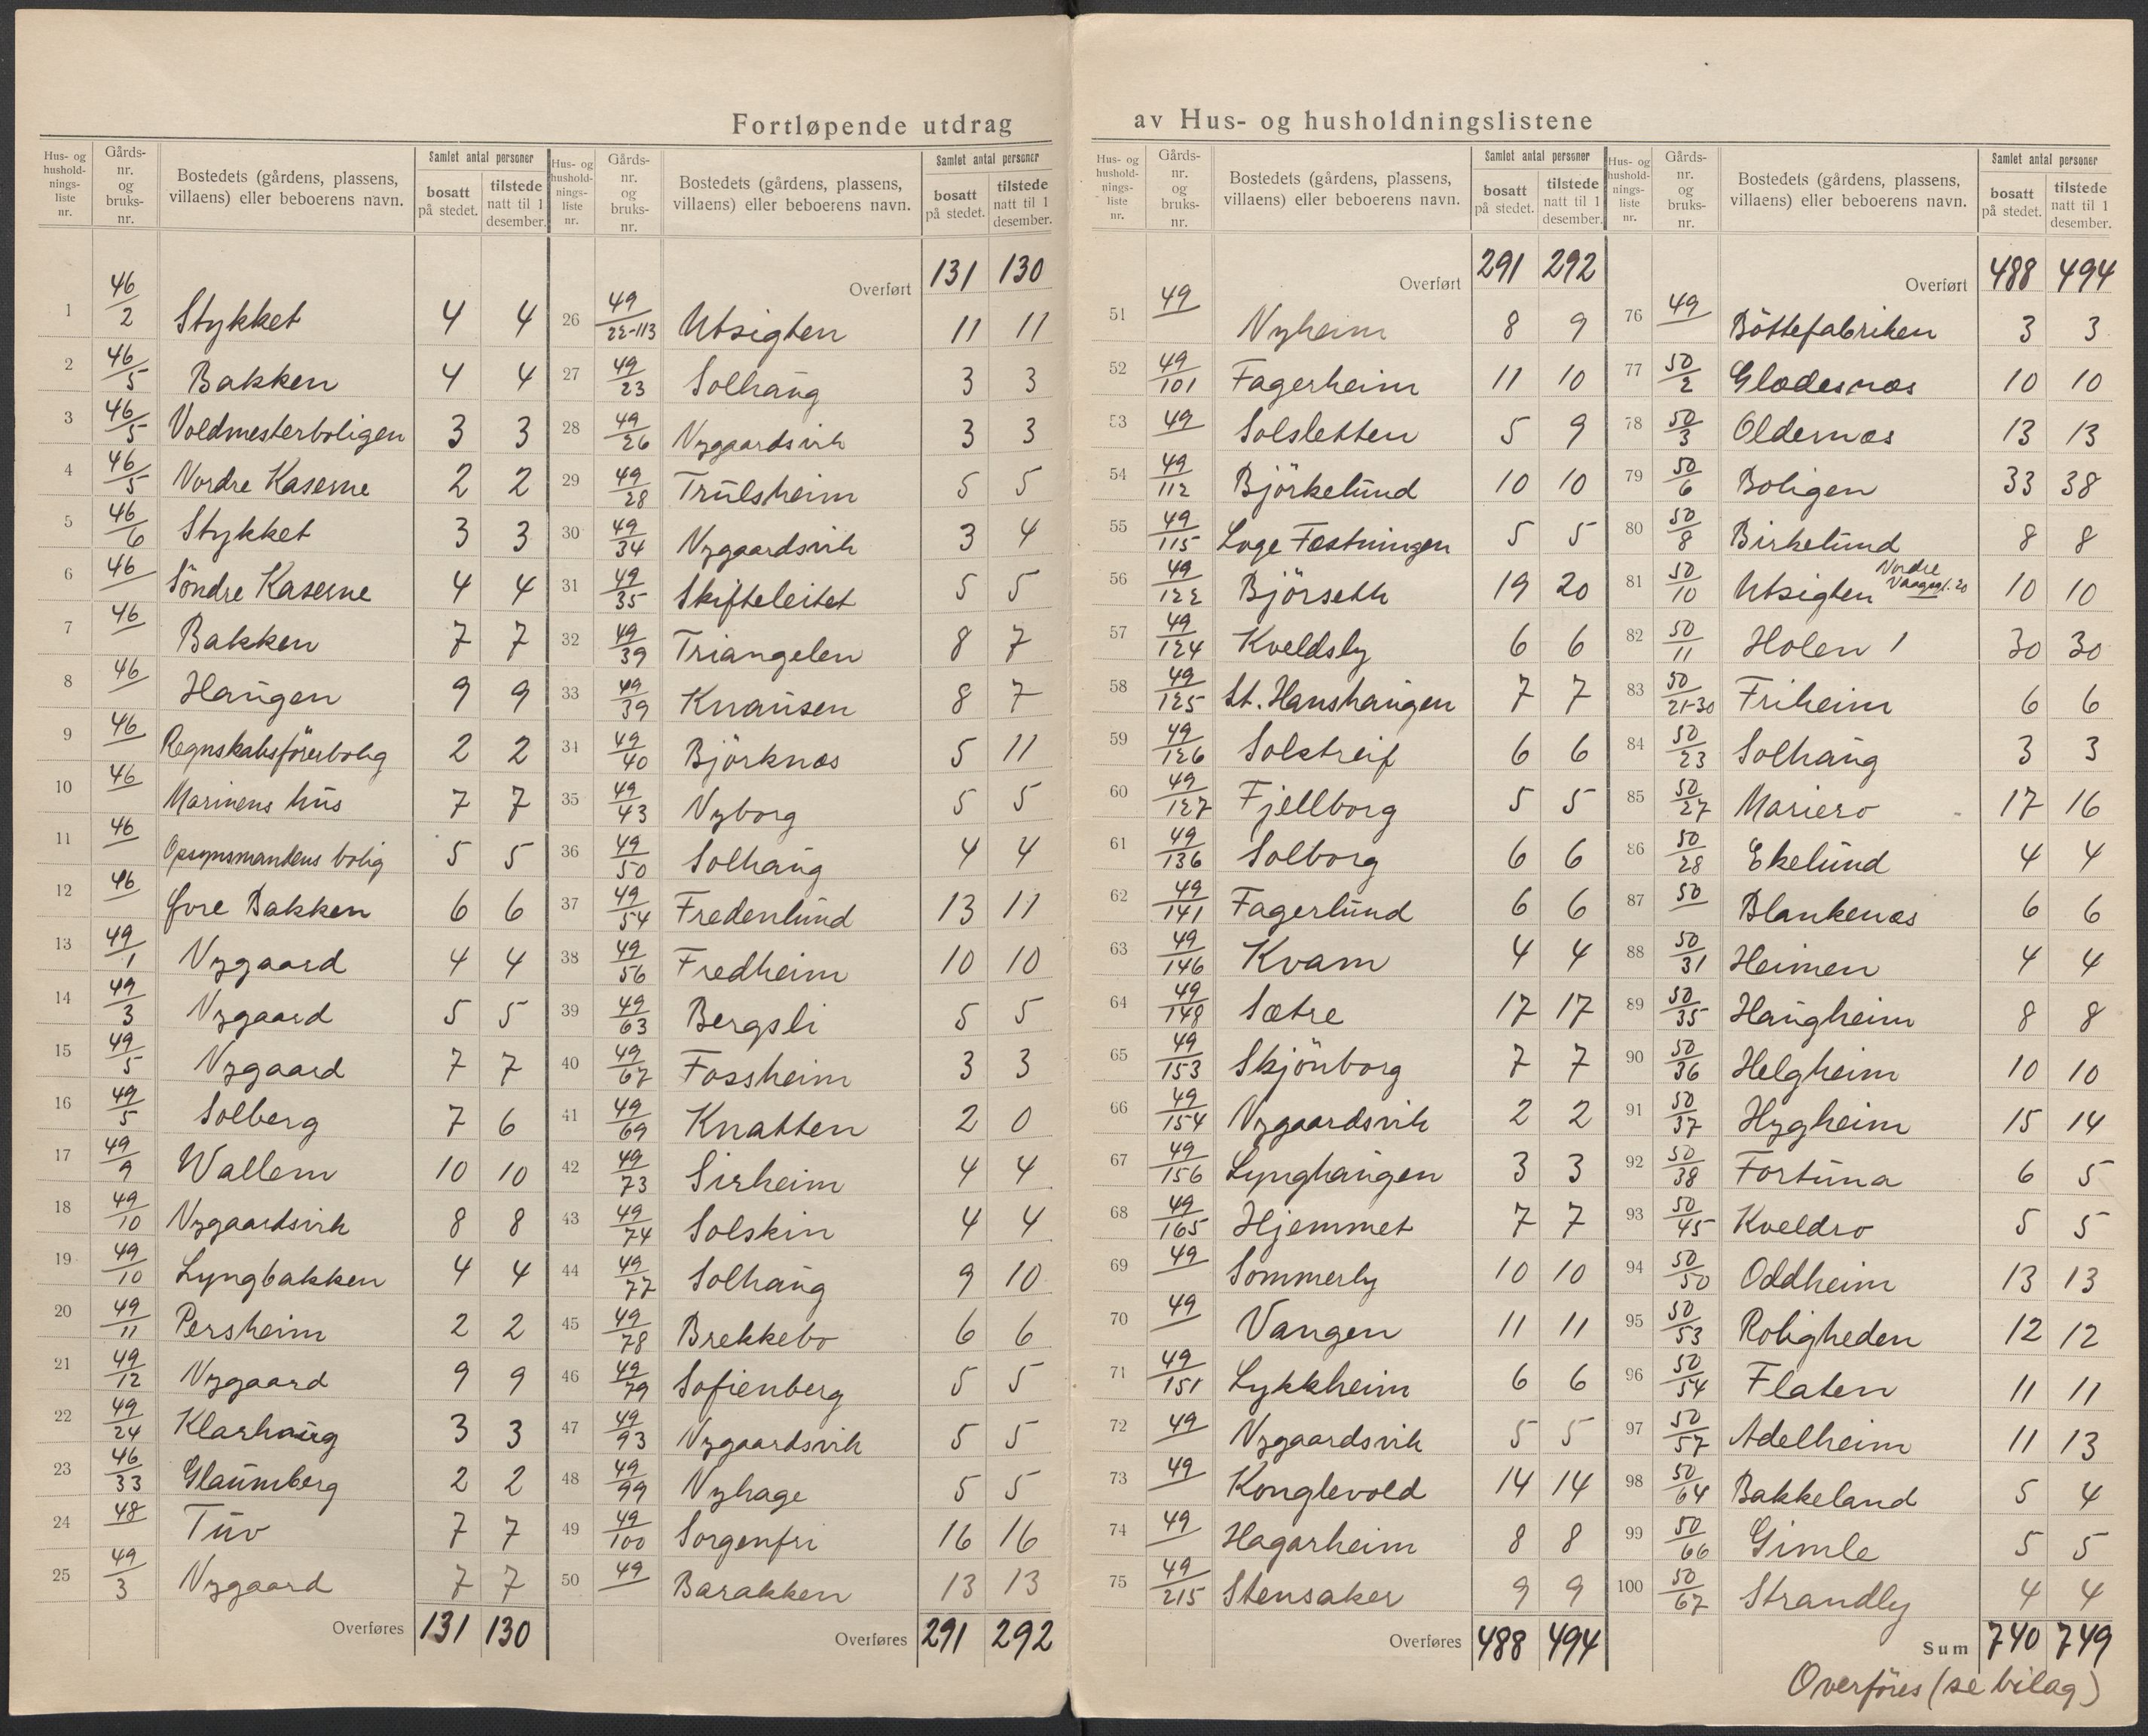 Fortløpende utdrag av Hus- og husholdningslistene
Hus- og husholdningsliste nr. | Gårds-nr. og bruks-nr. | Bostedets (gårdens, plassens, villaens) eller beboerens navn. | Samlet antal personer: bosatt på stedet. | tilstede natt til 1 desember.
1 46/2 Stykket 4 4
2 46/5 Bakken 4 4
3 46/5 Voldmesterboligen 3 3
4 46/5 Nordre Kaserne 2 2
5 46/6 Stykket 3 3
6 46 Söndre Kaserne 4 4
7 46 Bakken 7 7
8 46 Haugen 9 9
9 46 Regnskabsförerbolig 2 2
10 46 Marinens hus 7 7
11 46 Opsynsmandens bolig 5 5
12 46 Øvre Bakken 6 6
13 49/1 Nygaard 4 4
14 49/3 Nygaard 5 5
15 49/5 Nygaard 7 7
16 49/5 Solberg 7 6
17 49/9 Wallem 10 10
18 49/10 Nygaardsvik 8 8
19 49/10 Lyngbakken 4 4
20 49/11 Persheim 2 2
21 49/12 Nygaard 9 9
22 49/24 Klarhaug 3 3
23 46/33 Glaumberg 2 2
24 48 Tuv 7 7
25 49/3 Nygaard 7 7
Overføres 131 130
Hus- og husholdningsliste nr. | Gårds-nr. og bruks-nr. | Bostedets (gårdens, plassens, villaens) eller beboerens navn. | Samlet antal personer: bosatt på stedet. | tilstede natt til 1 desember.
Overført 131 130
26 49/22-113 Utsigten 11 11
27 49/23 Solhaug 3 3
28 49/26 Nygaardsvik 3 3
29 49/28 Trulsheim 5 5
30 49/34 Nygaardsvik 3 4
31 49/35 Skifteleitet 5 5
32 49/39 Triangelen 8 7
33 49/39 Knausen 8 7
34 49/40 Björknæs 5 11
35 49/43 Nyborg 5 5
36 49/50 Solhaug 4 4
37 49/54 Fredenlund 13 11
38 49/56 Fredheim 10 10
39 49/63 Bergsli 5 5
40 49/67 Fossheim 3 3
41 49/69 Knatten 2 0
42 49/73 Sirheim 4 4
43 49/74 Solskin 4 4
44 49/77 Solhaug 9 10
45 49/78 Brekkebo 6 6
46 49/79 Sofienberg 5 5
47 49/93 Nygaardsvik 5 5
48 49/99 Nyhage 5 5
49 49/100 Sorgenfri 16 16
50 49 Barakken 13 13
Overføres 291 292
Hus- og husholdningsliste nr. | Gårds-nr. og bruks-nr. | Bostedets (gårdens, plassens, villaens) eller beboerens navn. | Samlet antal personer: bosatt på stedet. | tilstede natt til 1 desember.
Overført 291 292
51 49 Nyheim 8 9
52 49/101 Fagerheim 11 10
53 49 Solsletten 5 9
54 49/112 Björkelund 10 10
55 49/115 Loge Fæstningen 5 5
56 49/122 Björseth 19 20
57 49/124 Kveldsly 6 6
58 49/125 St. Hanshaugen 7 7
59 49/126 Solstreif 6 6
60 49/127 Fjellborg 5 5
61 49/136 Solborg 6 6
62 49/141 Fagerlund 6 6
63 49/146 Kvam 4 4
64 49/148 Sætre 17 17
65 49/153 Skjönborg 7 7
66 49/154 Nygaardsvik 2 2
67 49/156 Lynghaugen 3 3
68 49/165 Hjemmet 7 7
69 49 Sommerly 10 10
70 49 Vangen 11 11
71 49/151 Lykkheim 6 6
72 49 Nygaardsvik 5 5
73 49 Konglevold 14 14
74 49 Hagarheim 8 8
75 49/215 Stensaker 9 9
Overføres 488 494
Hus- og husholdningsliste nr. | Gårds-nr. og bruks-nr. | Bostedets (gårdens, plassens, villaens) eller beboerens navn. | Samlet antal personer: bosatt på stedet. | tilstede natt til 1 desember.
Overført 488 494
76 49 Böttefabriken 3 3
77 50/2 Gladesnæs 10 10
78 50/3 Oldernæs 13 13
79 50/6 Boligen 33 38
80 50/8 Birkelund 8 8
81 50/10 Utsigten Nordre 10 10
82 50/11 Holen 1 30 30
83 50/21-30 Friheim 6 6
84 50/23 Solhaug 3 3
85 50/27 Mariero 17 16
86 50/28 Ekelund 4 4
87 50 Blankenæs 6 6
88 50/31 Heimen 4 4
89 50/35 Haugheim 8 8
90 50/36 Helgheim 10 10
91 50/37 Hygheim 15 14
92 50/38 Fortuna 6 5
93 50/45 Kveldro 5 5
94 50/50 Oddheim 13 13
95 50/53 Roligheden 12 12
96 50/54 Flaten 11 11
97 50/57 Adelheim 11 13
98 50/64 Bakkeland 5 4
99 50/66 Gimle 5 5
100 50/67 Strandly 4 4
Sum 740 749
Overföres (se bilag)